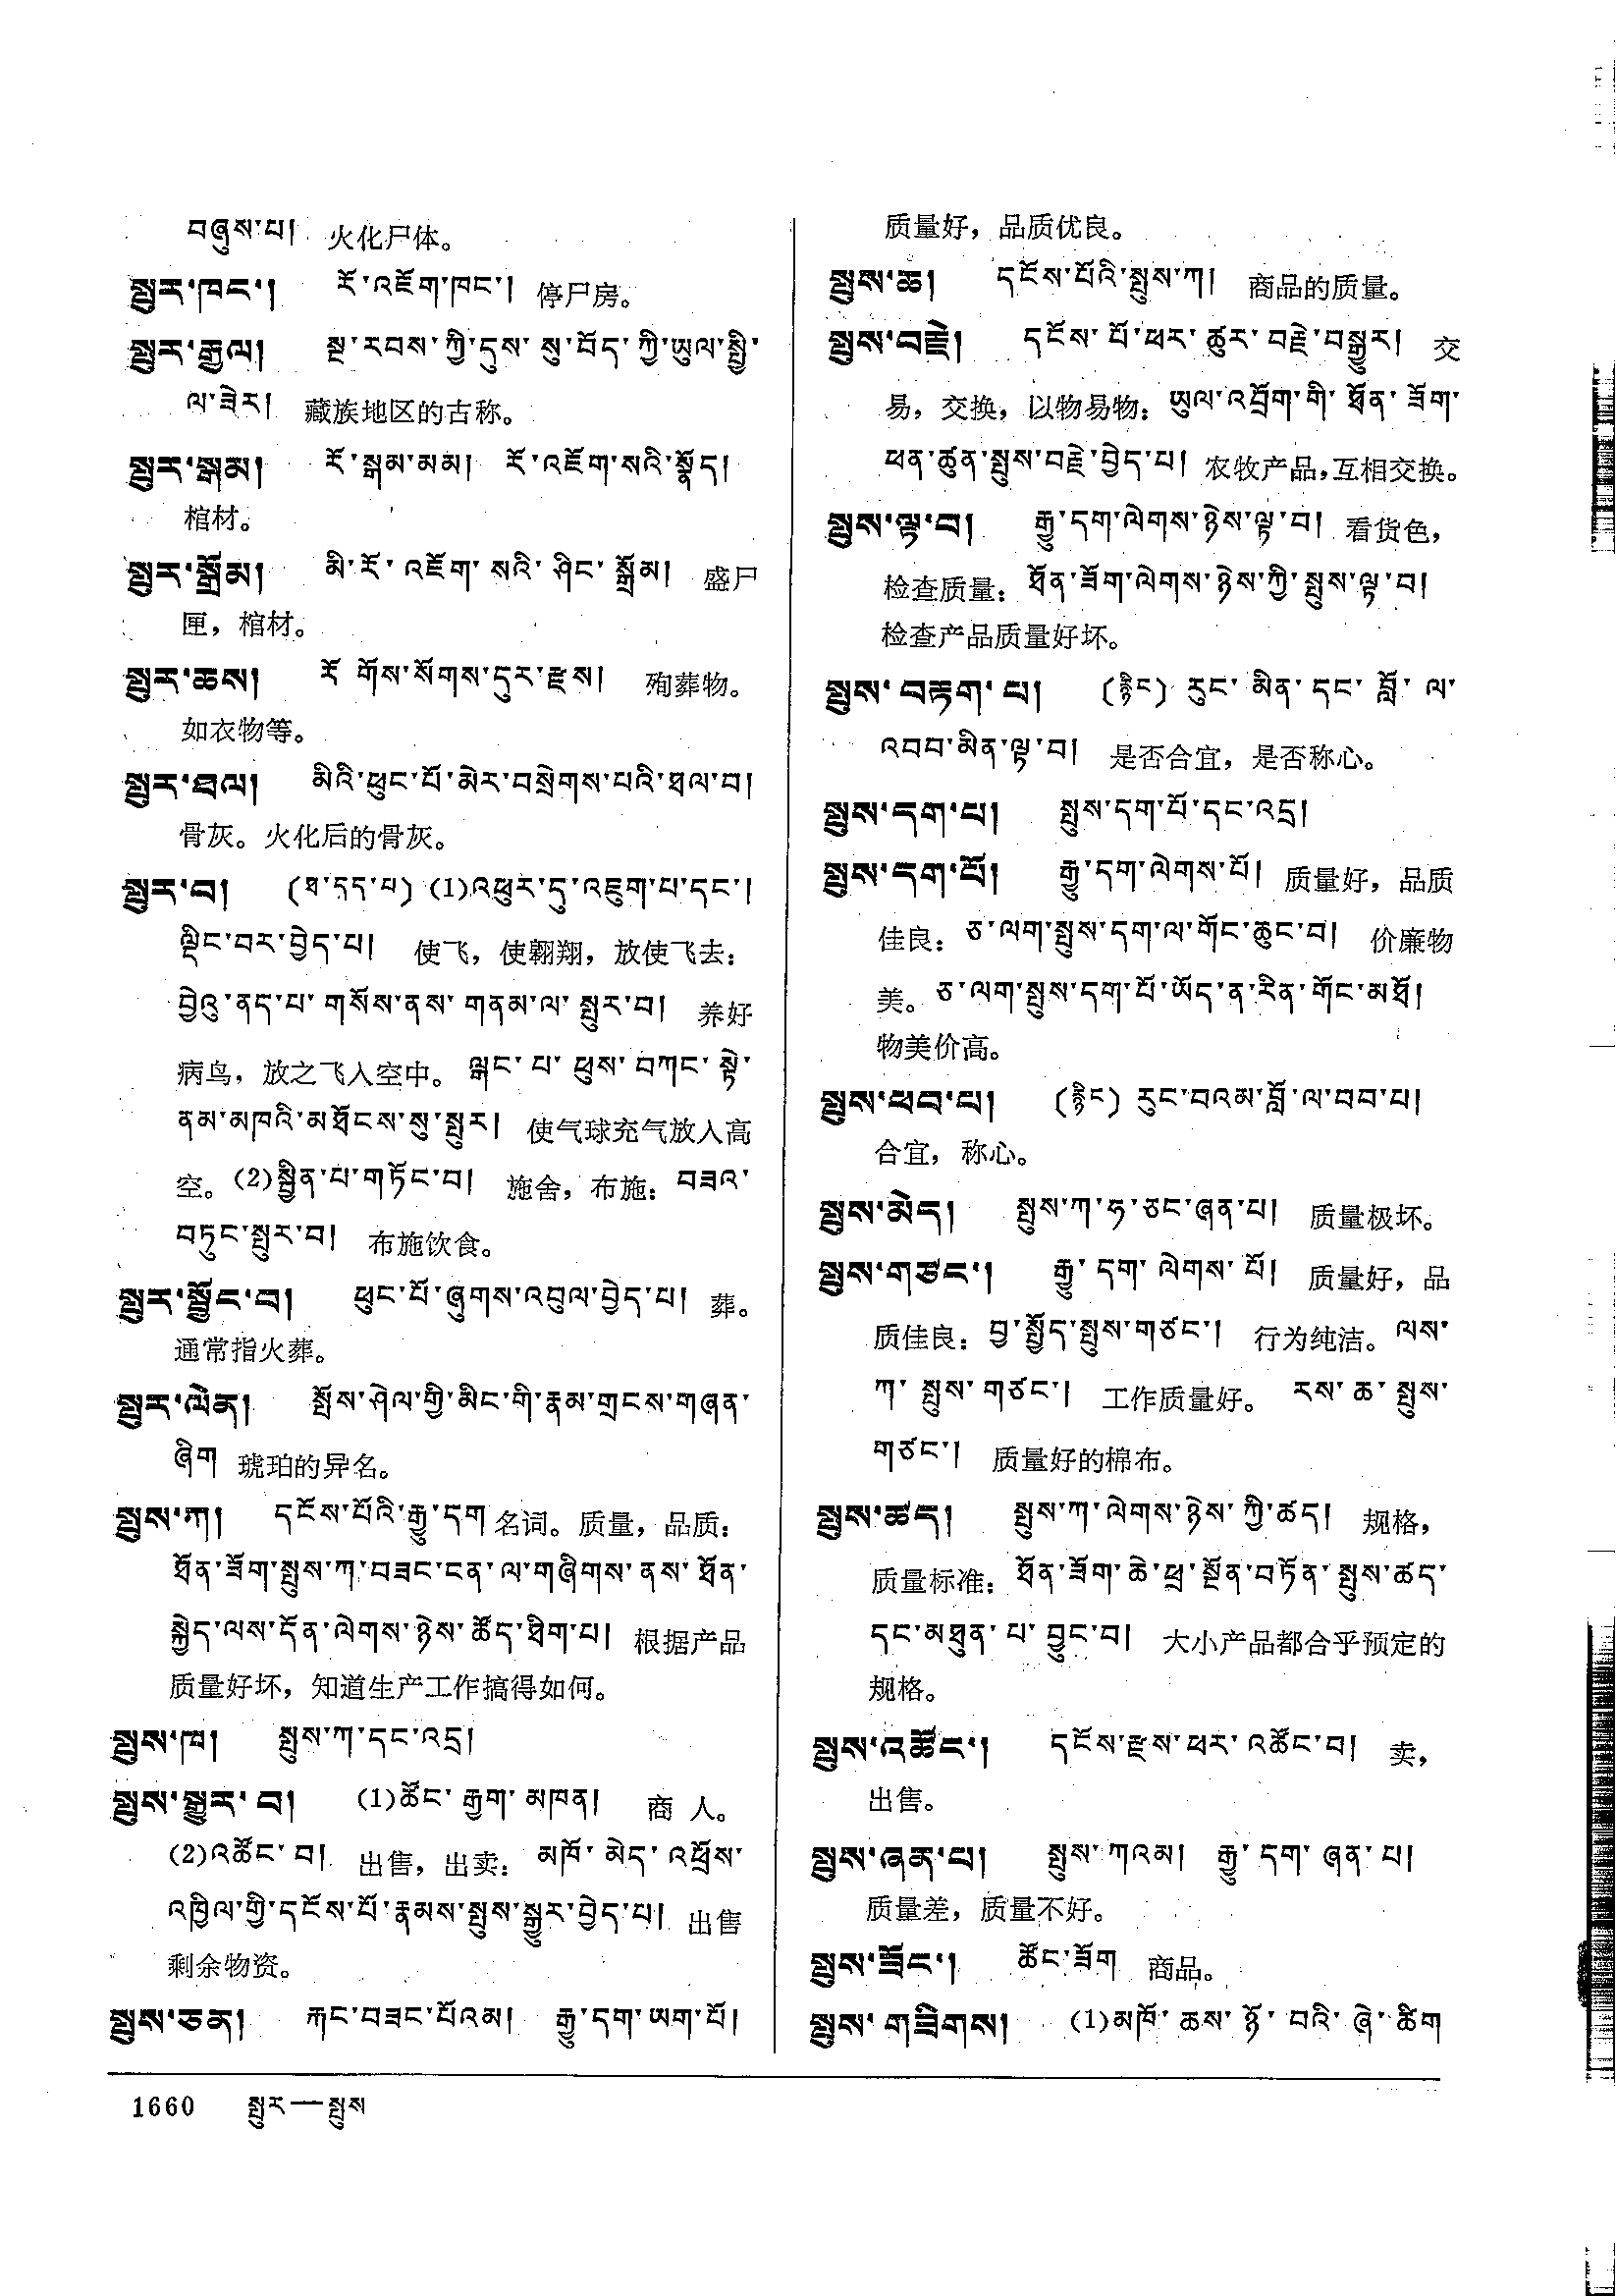 བཞུས་པ། 火化尸体。
སྤུར་ཁང་། རོ་འཇོག་ཁང་། 停尸房。
སྤུར་རྒྱལ། སྔ་རབས་ཀྱི་དུས་སུ་བོད་ཀྱི་ཡུལ་སྤྱི་
ལ་ཟེར། 藏族地区的古称。
སྤུར་སྒམ། རོ་སྒམ་མམ། རོ་འཇོག་སའི་སྣོད།
棺材。
སྤུར་སྒྲོམ། མི་རོ་འཇོག་སའི་ཤིང་སྒྲོམ། 盛尸
匣，棺材。
སྤུར་ཆས། རོ་གོས་སོགས་དུར་རྫས། 殉葬物。
如衣物等。
སྤུར་ཐལ། མིའི་ཕུང་པོ་མེར་བསྲེགས་པའི་ཐལ་བ།
骨灰。火化后的骨灰。
སྤུར་བ། (ཐ་དད་པ) (1)འཕུར་དུ་འཇུག་པ་དང་།
ལྡིང་བར་བྱེད་པ། 使飞，使翱翔，放使飞去：
བྱེའུ་ནད་པ་གསོས་ནས་གནམ་ལ་སྤུར་བ། 养好
病鸟，放之飞入空中。ལྒང་པ་ཕུས་བཀང་སྟེ་
ནམ་མཁའི་མཐོངས་སུ་སྤུར། 使气球充气放入高
空。(2)སྦྱིན་པ་གཏོང་བ། 施舍，布施：བཟའ་
བཏུང་སྤུར་བ། 布施饮食。
སྤུར་སྦྱོང་བ། ཕུང་པོ་ཞུགས་འབུལ་བྱེད་པ། 葬。
通常指火葬。
སྤུར་ལེན། སྤོས་ཤེལ་གྱི་མིང་གི་རྣམ་གྲངས་གཞན་
ཞིག 琥珀的异名。
སྤུས་ཀ། དངོས་པོའི་རྒྱུ་དག 名词。质量，品质：
ཐོན་ཟོག་སྤུས་ཀ་བཟང་ངན་ལ་གཞིགས་ནས་ཐོན་
སྐྱེད་ལས་དོན་ལེགས་ཉེས་ཚོད་ཐིག་པ། 根据产品
质量好坏，知道生产工作搞得如何。
སྤུས་ཁ། སྤུས་ཀ་དང་འདྲ།
སྤུས་སྒྱུར་བ། (1)ཚོང་རྒྱག་མཁན། 商 人。
(2)འཚོང་བ། 出售，出卖：མཁོ་མེད་འཕྲོས་
འཁྱིལ་གྱི་དངོས་པོ་རྣམས་སྤུས་སྒྱུར་བྱེད་པ། 出售
剩余物资。
སྤུས་ཅན། རྐང་བཟང་པོའམ། རྒྱུ་དག་ཡག་པོ།
质量好，品质优良。
སྤུས་ཆ། དངོས་པོའི་སྤུས་ཀ། 商品的质量。
སྤུས་བརྗེ། དངོས་པོ་ཕར་ཚུར་བརྗེ་བསྒྱུར། 交
易，交换，以物易物：ཡུལ་འབྲོག་གི་ཐོན་ཟོག་
ཕན་ཚུན་སྤུས་བརྗེ་བྱེད་པ། 农牧产品，互相交换。
སྤུས་ལྟ་བ། རྒྱུ་དག་ལེགས་ཉེས་ལྟ་བ། 看货色，
检查质量：ཐོན་ཟོག་ལེགས་ཉེས་ཀྱི་སྤུས་ལྟ་བ།
检查产品质量好坏。
སྤུས་བརྟག་པ། (རྙིང) རུང་མིན་དང་བློ་ལ་
འབབ་མིན་ལྟ་བ། 是否合宜，是否称心。
སྤུས་དག་པ། སྤུས་དག་པོ་དང་འདྲ།
སྤུས་དག་པོ། རྒྱུ་དག་ལེགས་པོ། 质量好，品质
佳良：ཅ་ལག་སྤུས་དག་ལ་གོང་ཆུང་བ། 价廉物
美。ཅ་ལག་སྤུས་དག་པོ་ཡོད་ན་རིན་གོང་མཐོ།
物美价高。
སྤུས་ཕབ་པ། (རྙིང) རུང་བའམ་བློ་ལ་བབ་པ།
合宜，称心。
སྤུས་མེད། སྤུས་ཀ་ཧ་ཅང་ཞན་པ། 质量极坏。
སྤུས་གཙང་། རྒྱུ་དག་ལེགས་པོ། 质量好，品
质佳良：བྱ་སྤྱོད་སྤུས་གཙང་། 行为纯洁。ལས་
ཀ་སྤུས་གཙང་། 工作质量好。རས་ཆ་སྤུས་
གཙང་། 质量好的棉布。
སྤུས་ཚད། སྤུས་ཀ་ལེགས་ཉེས་ཀྱི་ཚད། 规格，
质量标准：ཐོན་ཟོག་ཆེ་ཕྲ་སྔོན་བཏོན་སྤུས་ཚད་
དང་མཐུན་པ་བྱུང་བ། 大小产品都合乎预定的
规格。
སྤུས་འཚོང་། དངོས་རྫས་ཕར་འཚོང་བ། 卖，
出售。
སྤུས་ཞན་པ། སྤུས་ཀའམ། རྒྱུ་དག་ཞན་པ།
质量差，质量不好。
སྤུས་ཟོང་། ཚོང་ཟོག 商品。
སྤུས་གཟིགས། (1)མཁོ་ཆས་ཉོ་བའི་ཞེ་ཚིག
1660 སྤུར—སྤུས